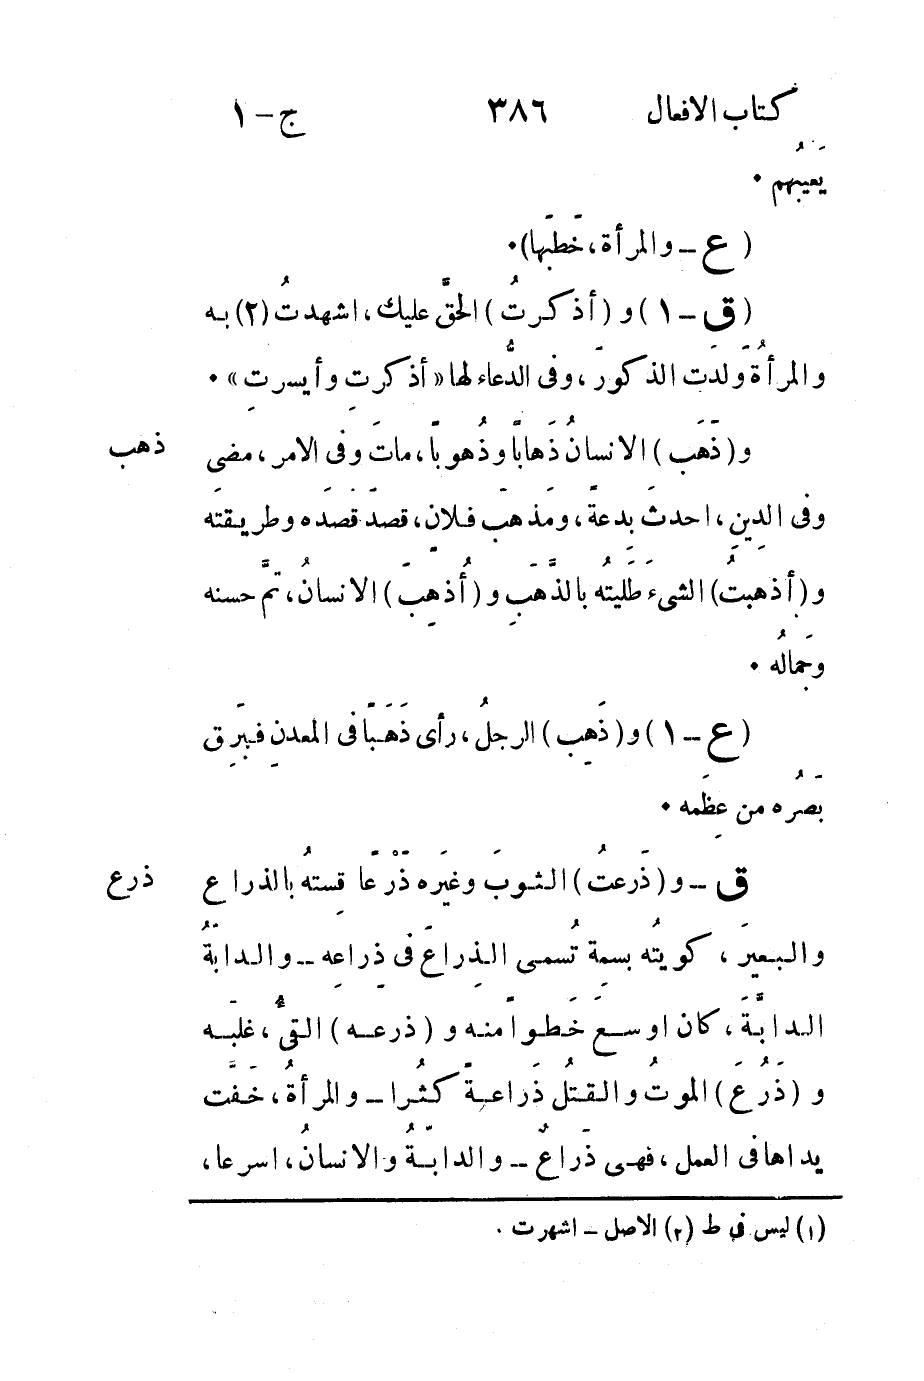 كتاب الافعال ٣٨٦ ج – ١
يَعيبُهم ٠
( ع – والمرأة، خَطَبَها)٠
(ق – ١ ) و (أذكرتُ) الحقَّ عليك، اشهدتُ (٢) به
والمرأةُ وَلدَت الذكورَ، وفى الدُّعاء لها «أذكرتِ وأيسرتِ» ٠
و (ذَهَب) الانسانُ ذَهابًا وذُهوبًا، ماتَ وفى الامر، مضى ذهب
وفى الدِينِ، احدثَ بِدعةً، ومَذهبَ فلانٍ، قصدَ قَصَدَه وطريقتَه
و (أذهبتُ) الشىءَ طَلَيتُه بالذَّهَبِ و (أُذهِبَ) الانسانُ، تمَّ حسنه
وجَمالُه ٠
(ع – ١ ) و (ذَهِب) الرجلُ، رأى ذَهَبًا فى المعدنِ فبَرِق
بَصَرُه من عِظَمِه ٠
ق – و (ذَرعتُ) الثوبَ وغيرَه ذَرْعًا قِستهُ بالذراع ذرع
والبعيرَ، كويتُه بِسمةٍ تُسمى الذِراعَ فى ذِراعِه – والدابّةُ
الدابَّةَ، كان اوسعَ خَطوًا منه و (ذرعه) القىُّ، غلَبَه
و (ذَرُعَ) الموتُ والقتلُ ذَراعةً كثُرا – والمرأةُ، خَفَّت
يداها فى العمل، فهى ذَراعٌ – والدابّةُ والانسانُ، اسرعا،
(١) ليس فى ط (٢) الاصل – اشهرت ٠